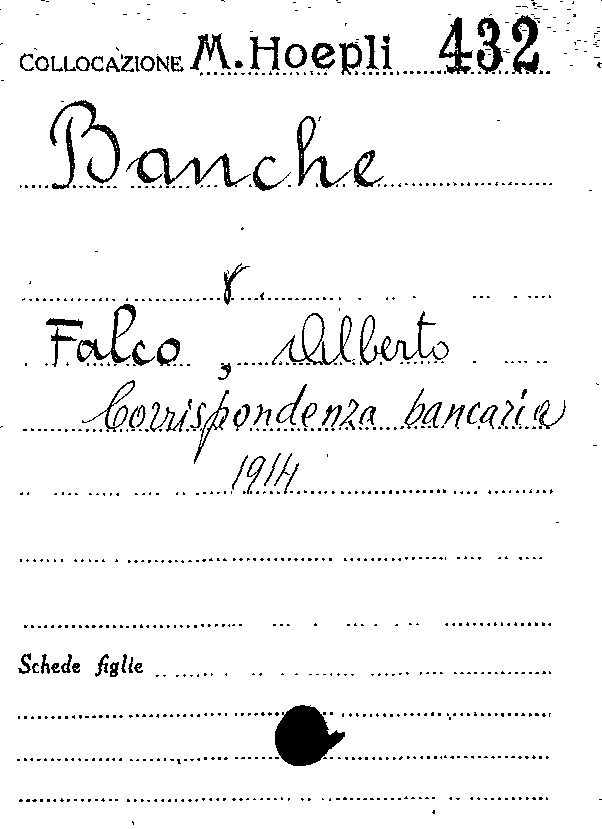 COLLOCAZIONE M. Hoepli 432
Banche
Falco, Alberto
Corrispondenza bancaria
1914
Schede figlie